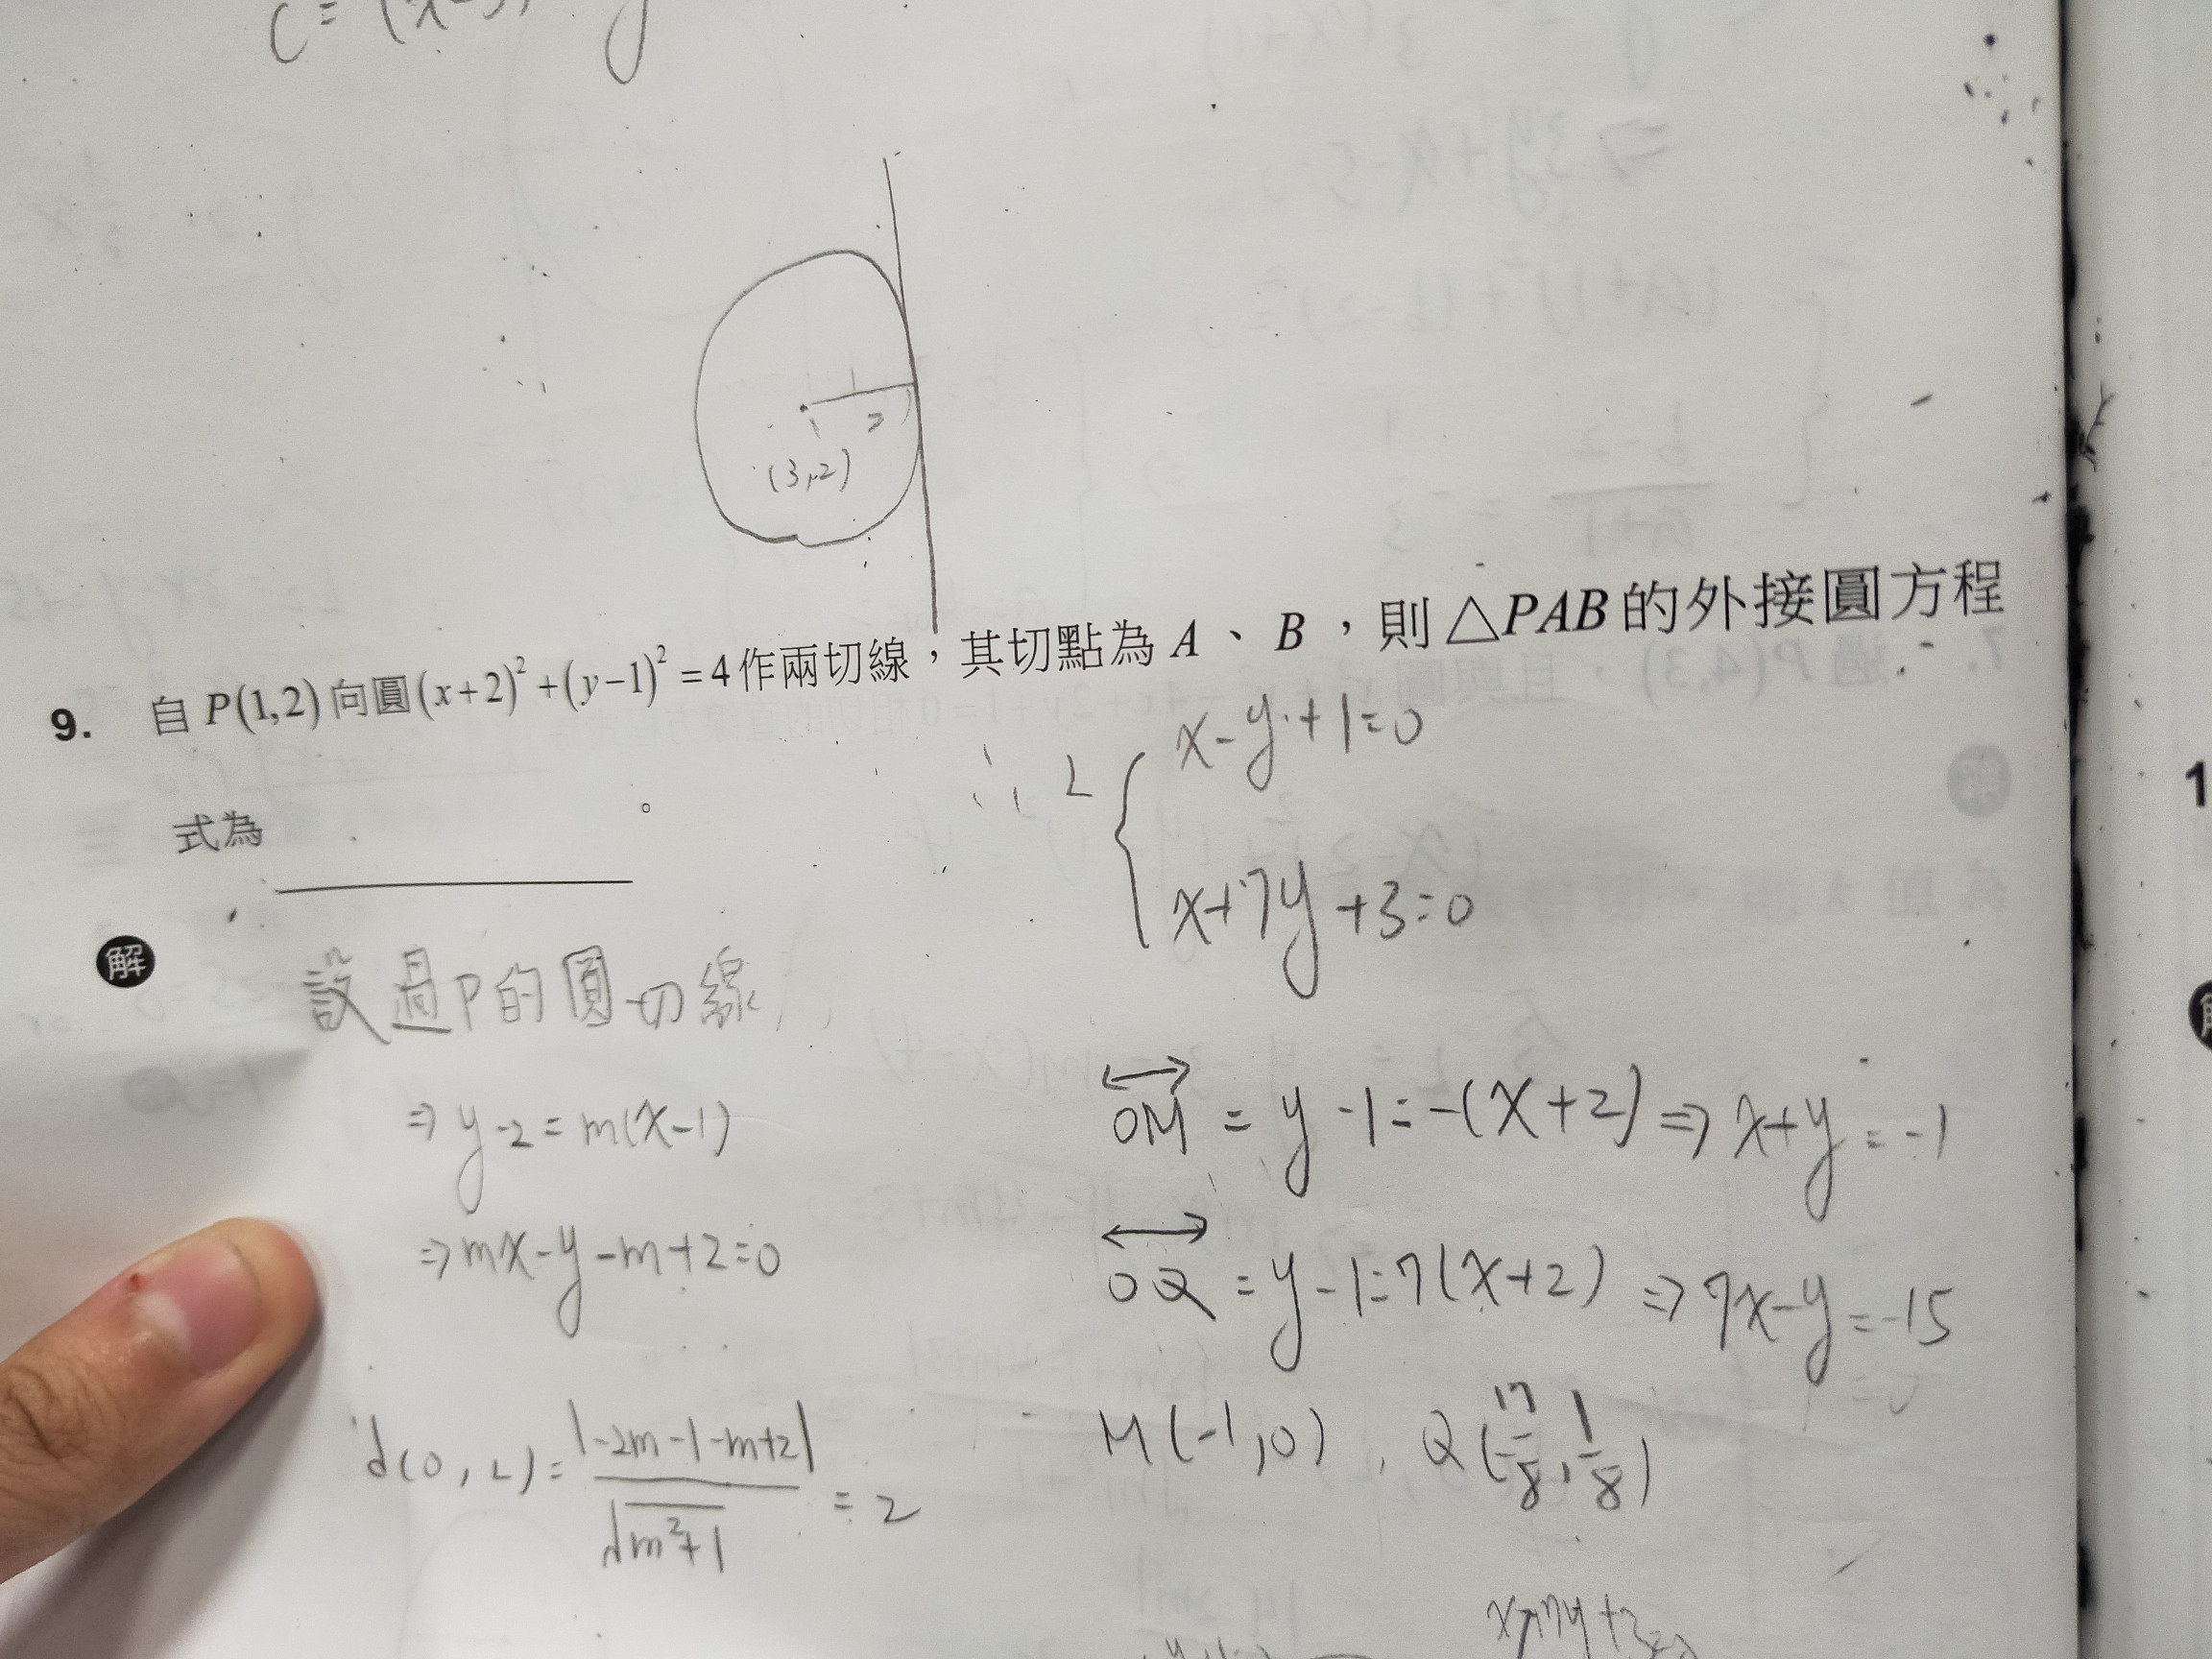 (3,2)
9. 自 P(1,2) 向圓 (x+2)²+(y−1)²=4 作兩切線，其切點為 A、B，則△PAB的外接圓方程
式為 。
解
設過P的圓切線
⇒ y-2=m(x-1)
⇒ mx-y-m+2=0
d(0, L)= |-2m-1-m+2| / √m²+1 = 2
∴ L { x-y+1=0
x+7y+3=0
OM = y-1=-(x+2) ⇒ x+y=-1
OQ = y-1=7(x+2) ⇒ 7x-y=-15
M(-1,0), Q(-17/8, 1/8)
x+7y+3=0
1